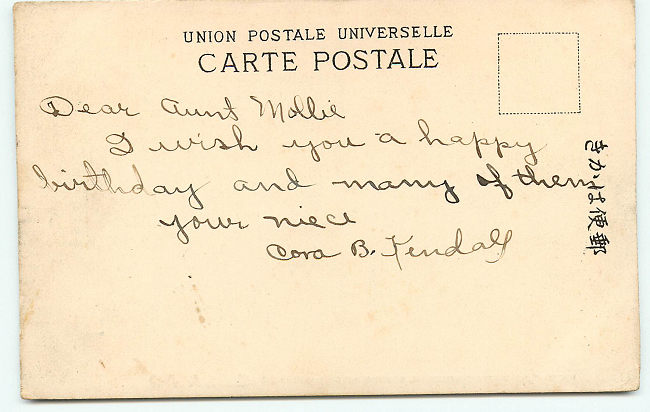 UNION POSTALE UNIVERSELLE
CARTE POSTALE
Dear Aunt Mollie
I wish you a happy
birthday and many of them
your niece
Cora B. Kendall
きかは便郵